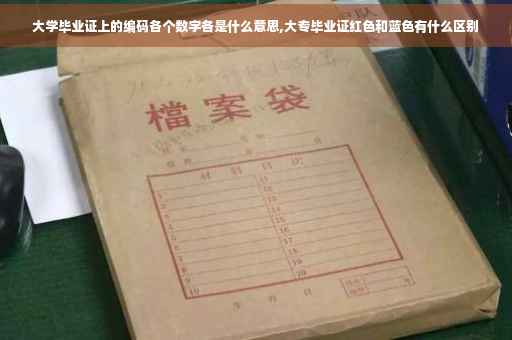 大学毕业证上的编码各个数字各是什么意思,大专毕业证红色和蓝色有什么区别
檔案袋
材料目次
1 11
2 12
3 13
4 14
5 15
6 16
7 17
8 18
9 19
10 20
年 月 日